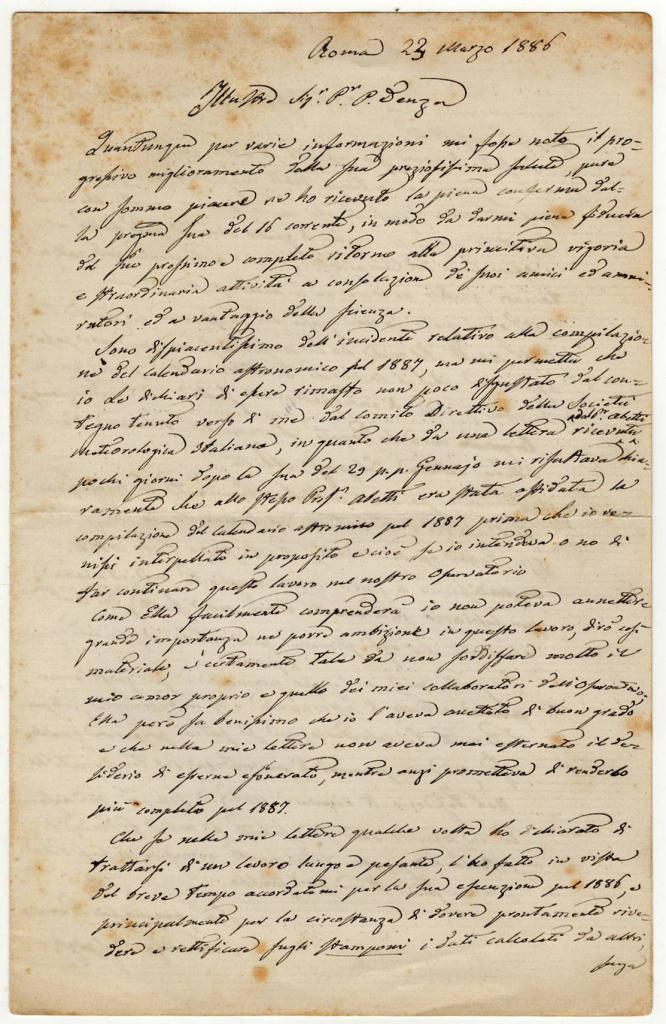 Roma 23 Marzo 1886
Illustre Sigr. Pr. P. Denza
Quantunque per varie informazioni mi fosse noto il pro-
gressivo miglioramento della sua preziosissima salute, pure
con sommo piacere ne ho ricevuto la piena conferma dal-
la pregma sua del 16 corrente, in modo da darmi piena fiducia
del suo prossimo e completo ritorno alla primitiva vigoria
e straordinaria attività a consolazione de' suoi amici ed ammi-
ratori ed a vantaggio della scienza.
Sono dispiacentissimo dell'incidente relativo alla compilazio-
ne del calendario astronomico pel 1887, ma mi permetta che
io Le dichiari di essere rimasto non poco disgustato dal con-
tegno tenuto verso di me dal Comitato Direttivo della Società
meteorologica Italiana, in quanto che da una lettera ricevuta dal Pr. Abetti
pochi giorni dopo la sua del 29 p.p. Gennajo mi risultava chia-
ramente che allo stesso Prof. Abetti era stata affidata la
compilazione del calendario astronomico pel 1887 prima che io ve-
nissi interpellato in proposito e cioè se io intendeva o no di
far continuare questo lavoro nel nostro Osservatorio
Come Ella facilmente comprenderà io non poteva annettere
grande importanza ne porre ambizione in questo lavoro, dirò così
materiale, è certamente tale da non soddisfare molto il
mio amor proprio e quello dei miei collaboratori dell'Osservatorio.
Ella però sa benissimo che io l'aveva accettato di buon grado
e che nelle mie lettere non aveva mai esternato il de-
siderio di esserne esonerato, mentre anzi prometteva di renderlo
più completo pel 1887.
Che se nelle mie lettere qualche volta ho dichiarato di
trattarsi di un lavoro lungo e pesante, l'ho fatto in vista
del breve tempo accordatomi per la sua esecuzione pel 1886, e
principalmente per la circostanza di dovere prontamente rive-
dere e rettificare sugli stamponi i dati calcolati da altri,
senza